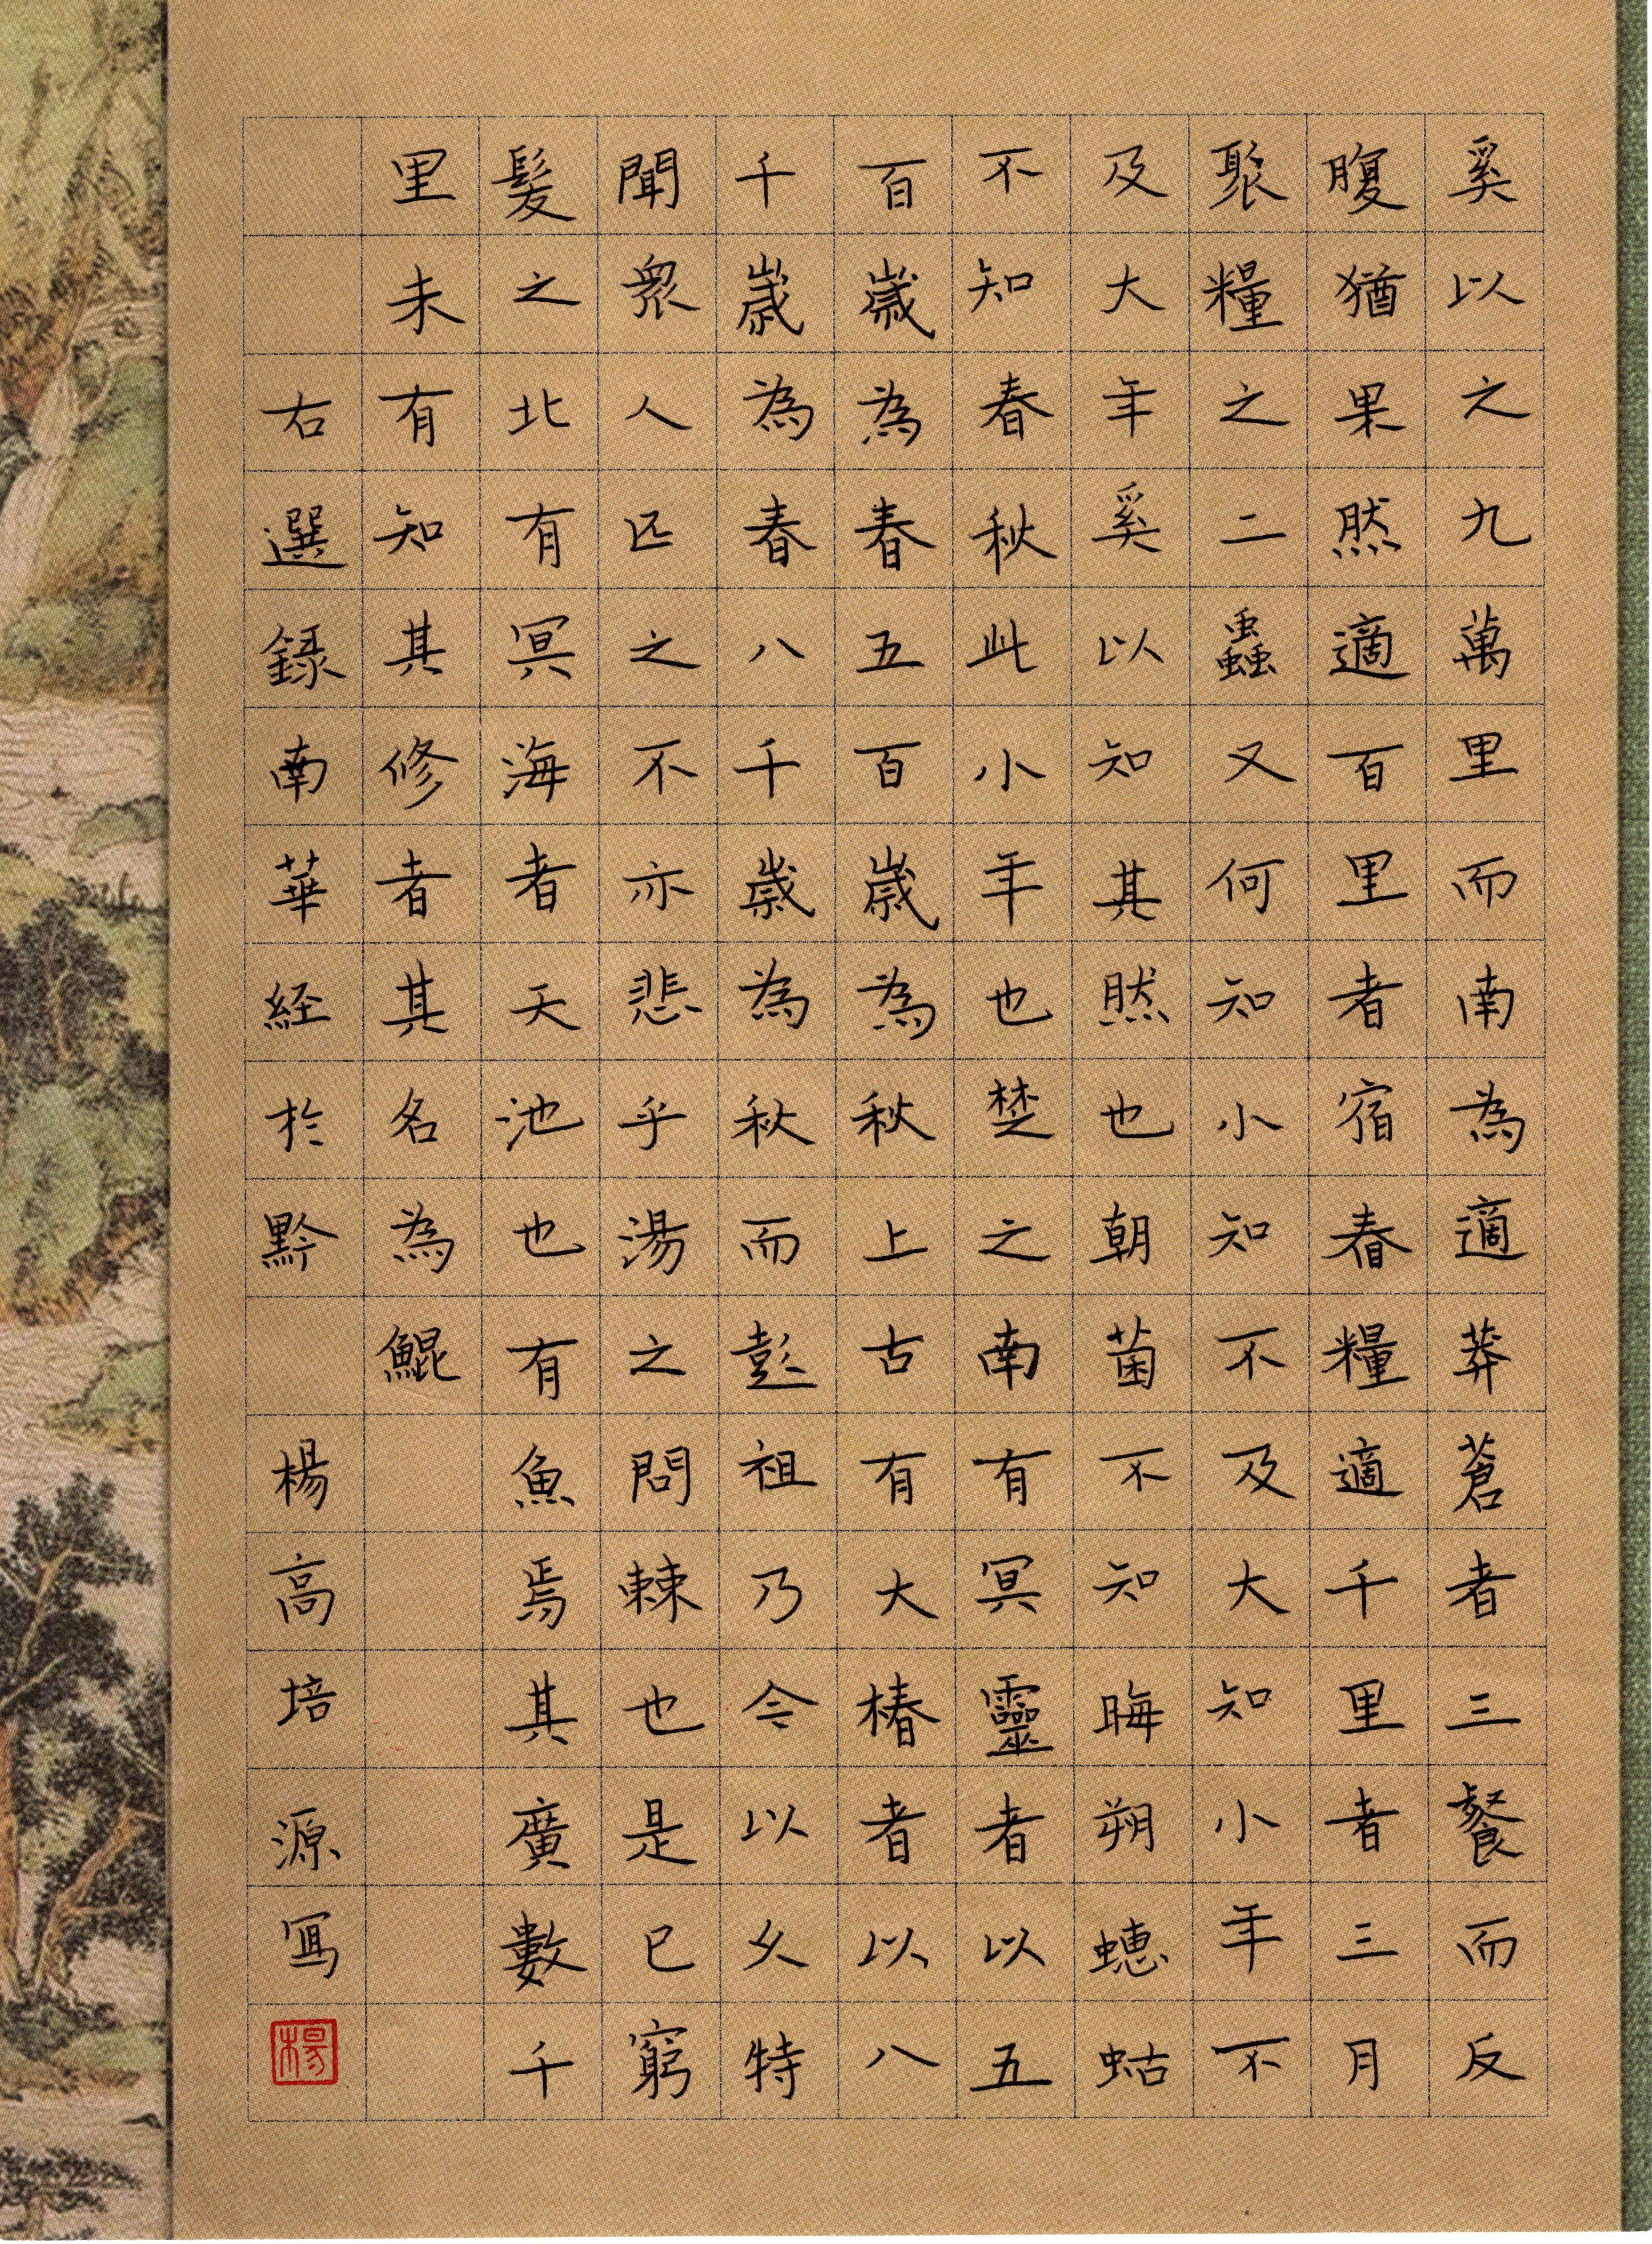 奚以之九萬里而南為適莽蒼者三餐而反
腹猶果然適百里者宿舂糧適千里者三月
聚糧之二蟲又何知小知不及大知小年不
及大年奚以知其然也朝菌不知晦朔蟪蛄
不知春秋此小年也楚之南有冥靈者以五
百歲為春五百歲為秋上古有大椿者以八
千歲為春八千歲為秋而彭祖乃今以久特
聞眾人匹之不亦悲乎湯之問棘也是已窮
髮之北有冥海者天池也有魚焉其廣數千
里未有知其修者其名為鯤
右選錄南華経於黔 楊高培源寫
楊